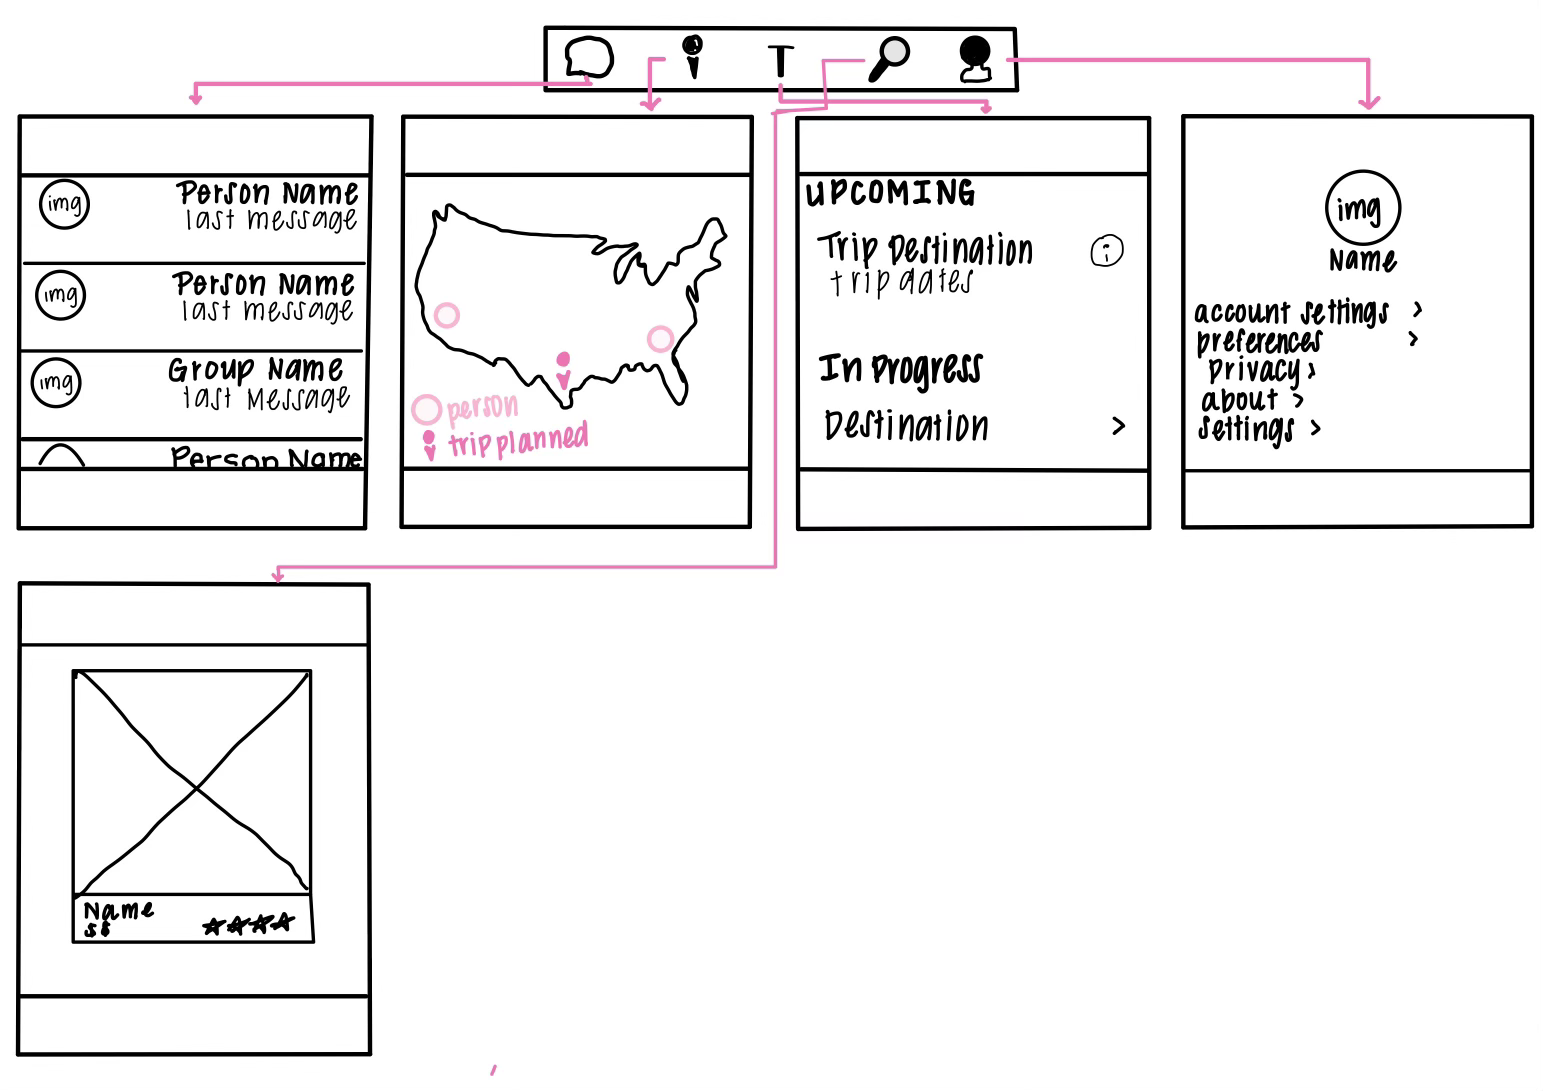 T
img
Person Name
last message
img
Person Name
last message
img
Group Name
last Message
Person Name
person
trip planned
UPCOMING
Trip Destination
trip dates
In Progress
Destination >
img
Name
account settings >
preferences >
privacy >
about >
settings >
Name
$$